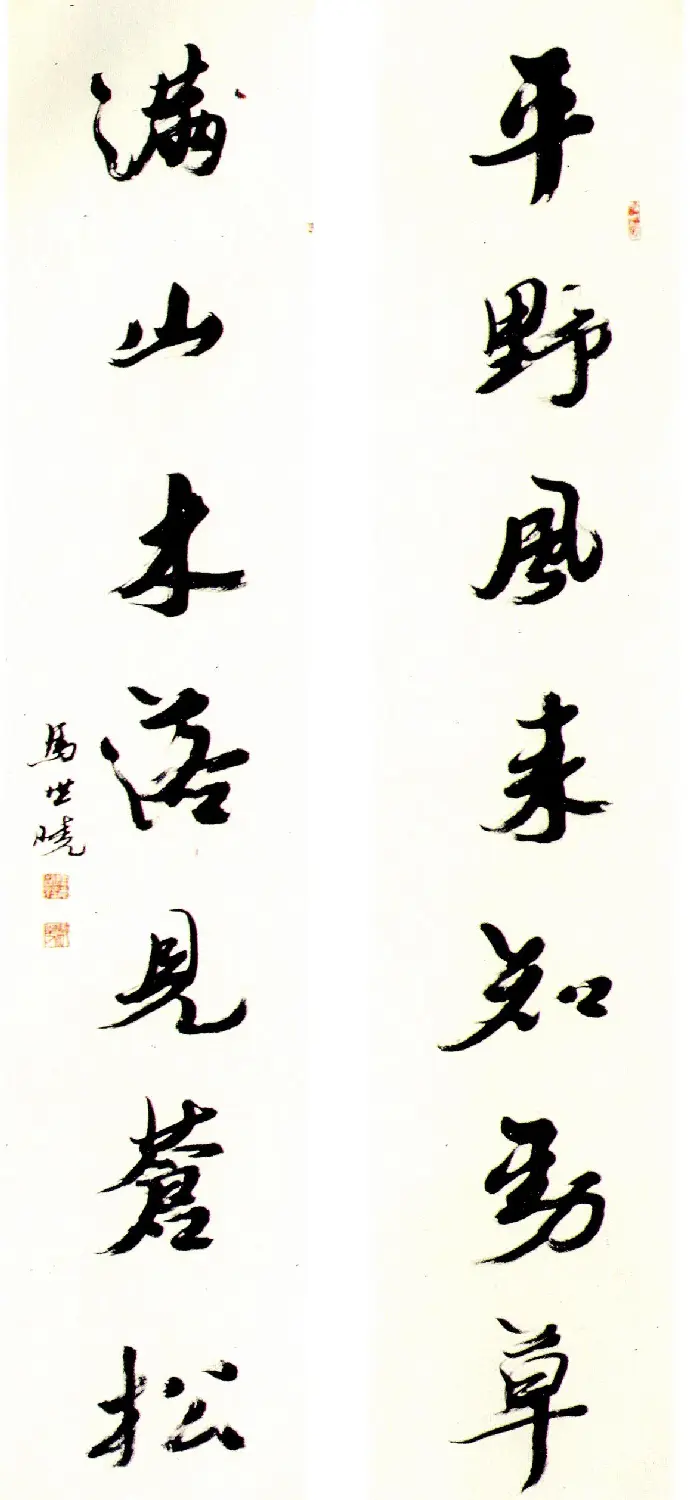 平野風来知勁草
满山木落見蒼松
馬世曉